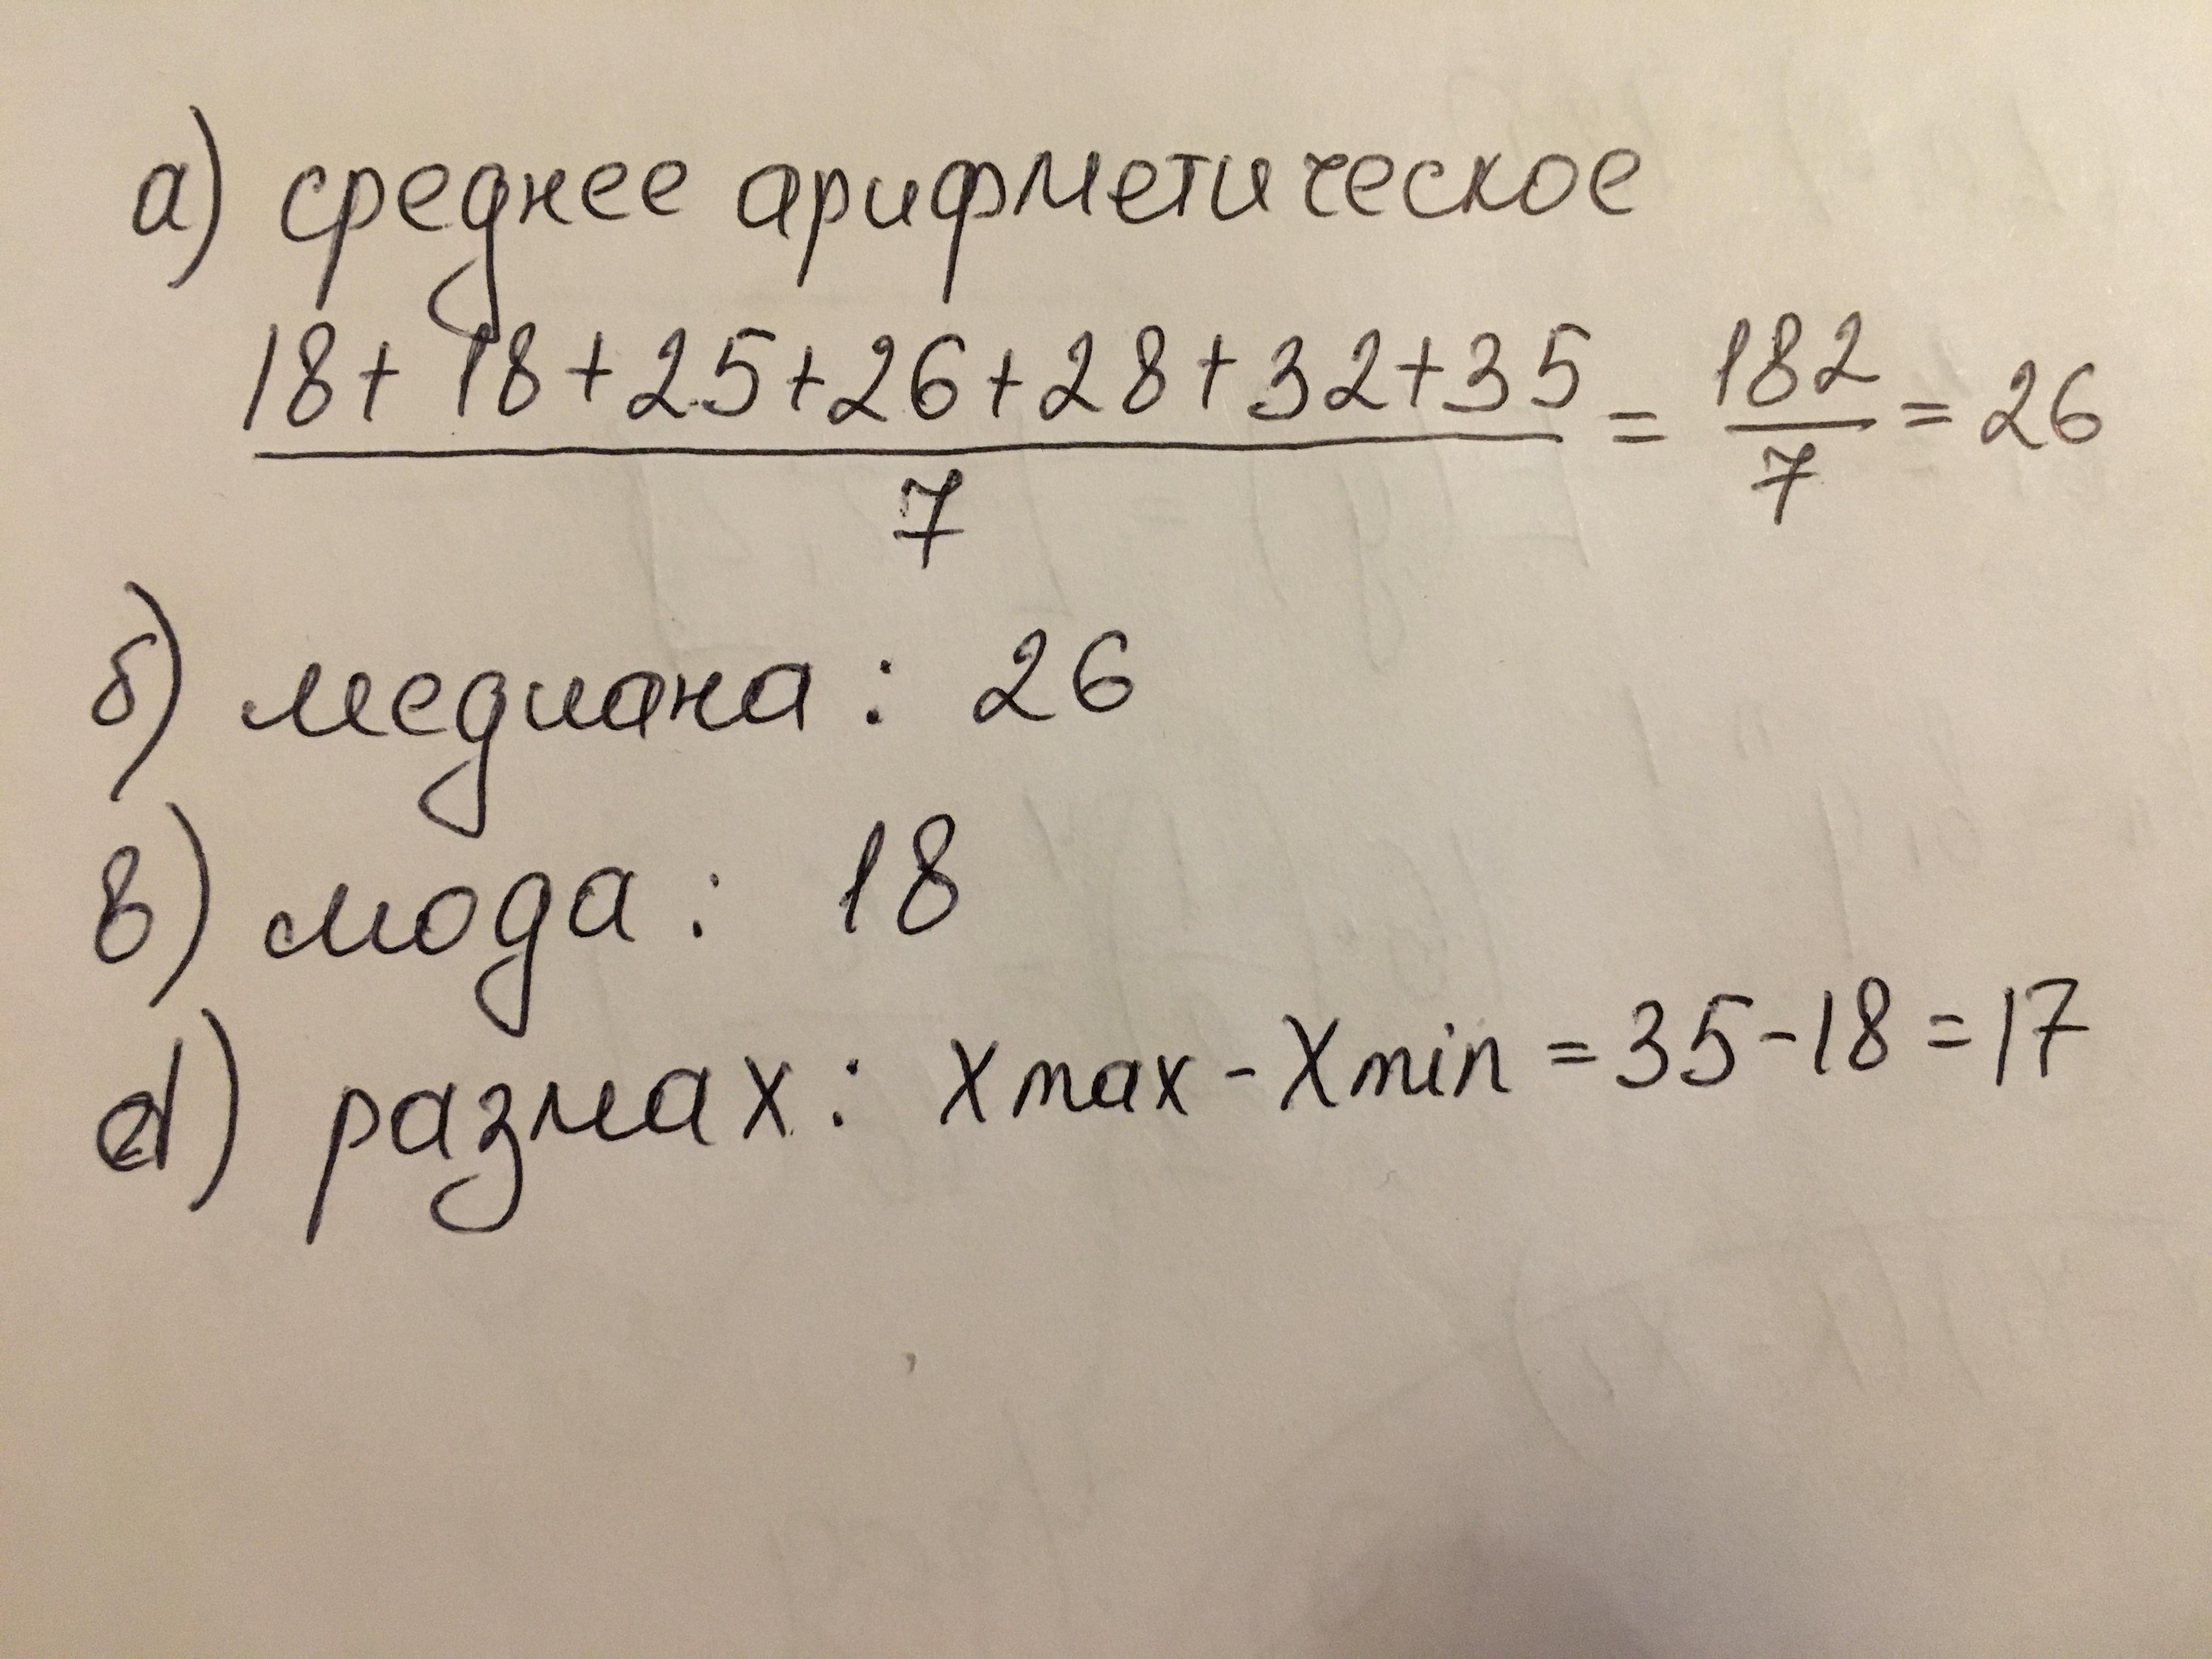 а) среднее арифметическое
18+18+25+26+28+32+35 = 182 = 26
7 7
б) медиана: 26
в) мода: 18
d) размах: xmax-xmin=35-18=17